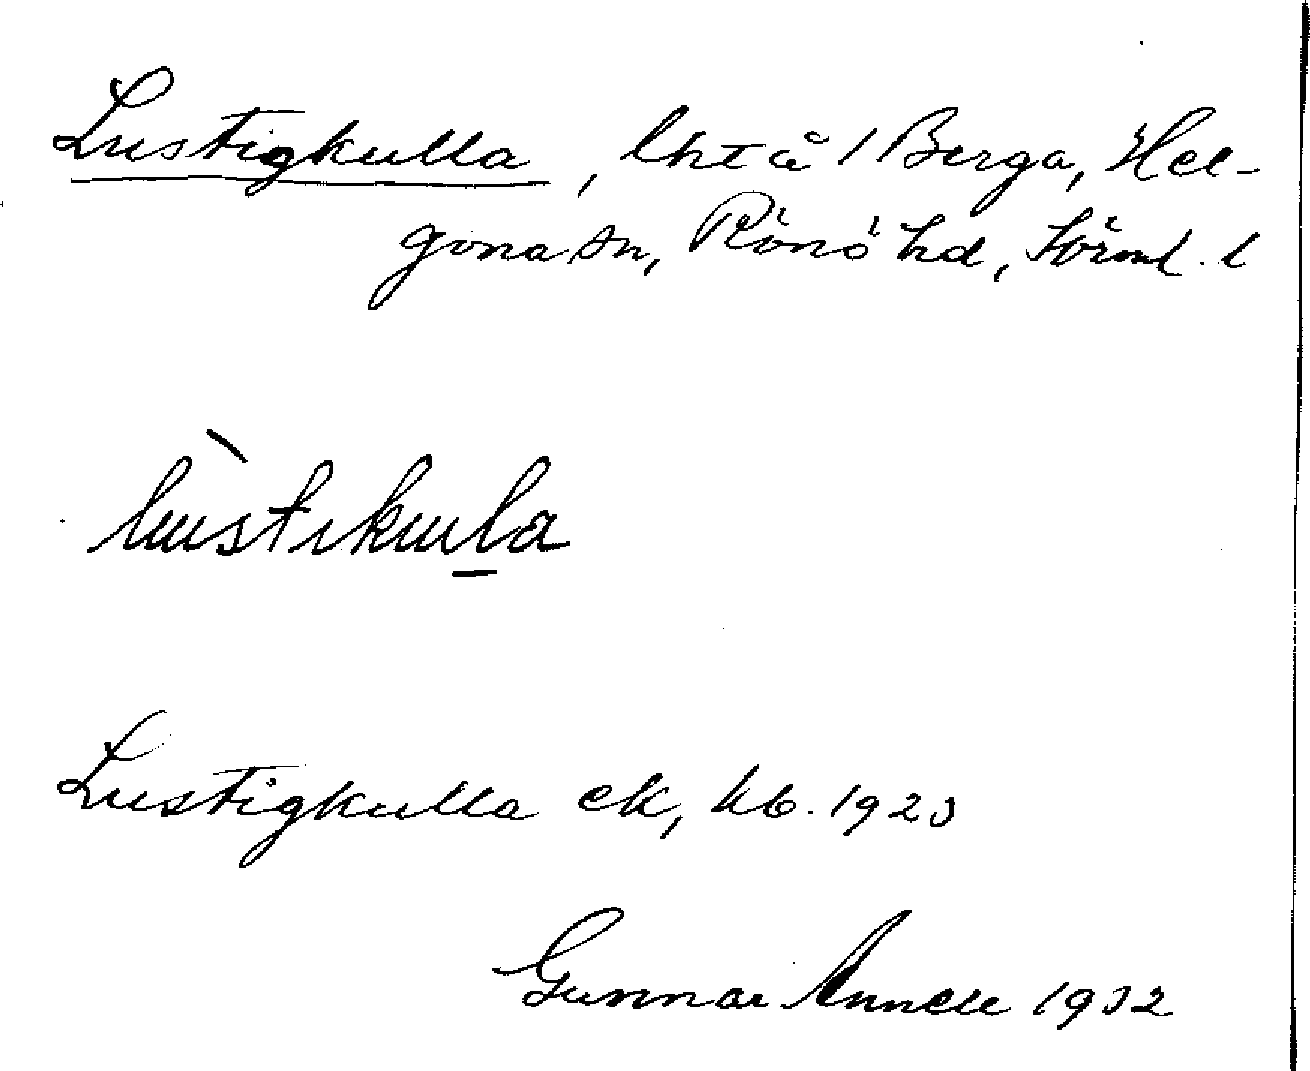 Lustigkulla, lht å 1 Berga, Hel-
gona sn, Rönö hd, Sörml. l
lustikula
Lustigkulla ek, kb. 1923
Gunnar Annell 1932